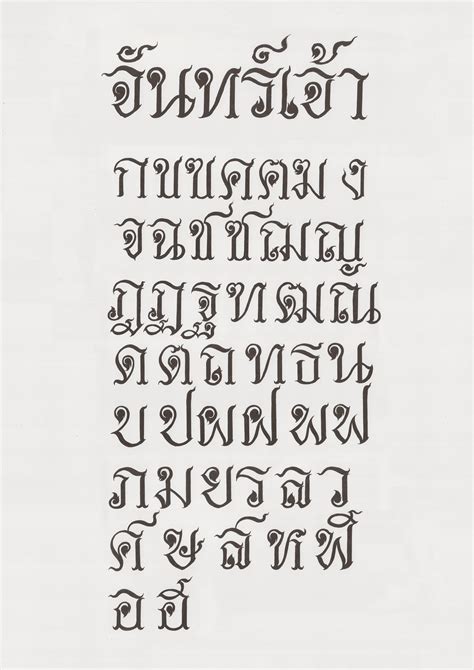 จันทร์เจ้า
ก ข ฃ ค ฅ ฆ ง
จ ฉ ช ซ ฌ ญ
ฎ ฏ ฐ ฑ ฒ ณ
ด ต ถ ท ธ น
บ ป ผ ฝ พ ฟ
ภ ม ย ร ล ว
ศ ษ ส ห ฬ
อ ฮ